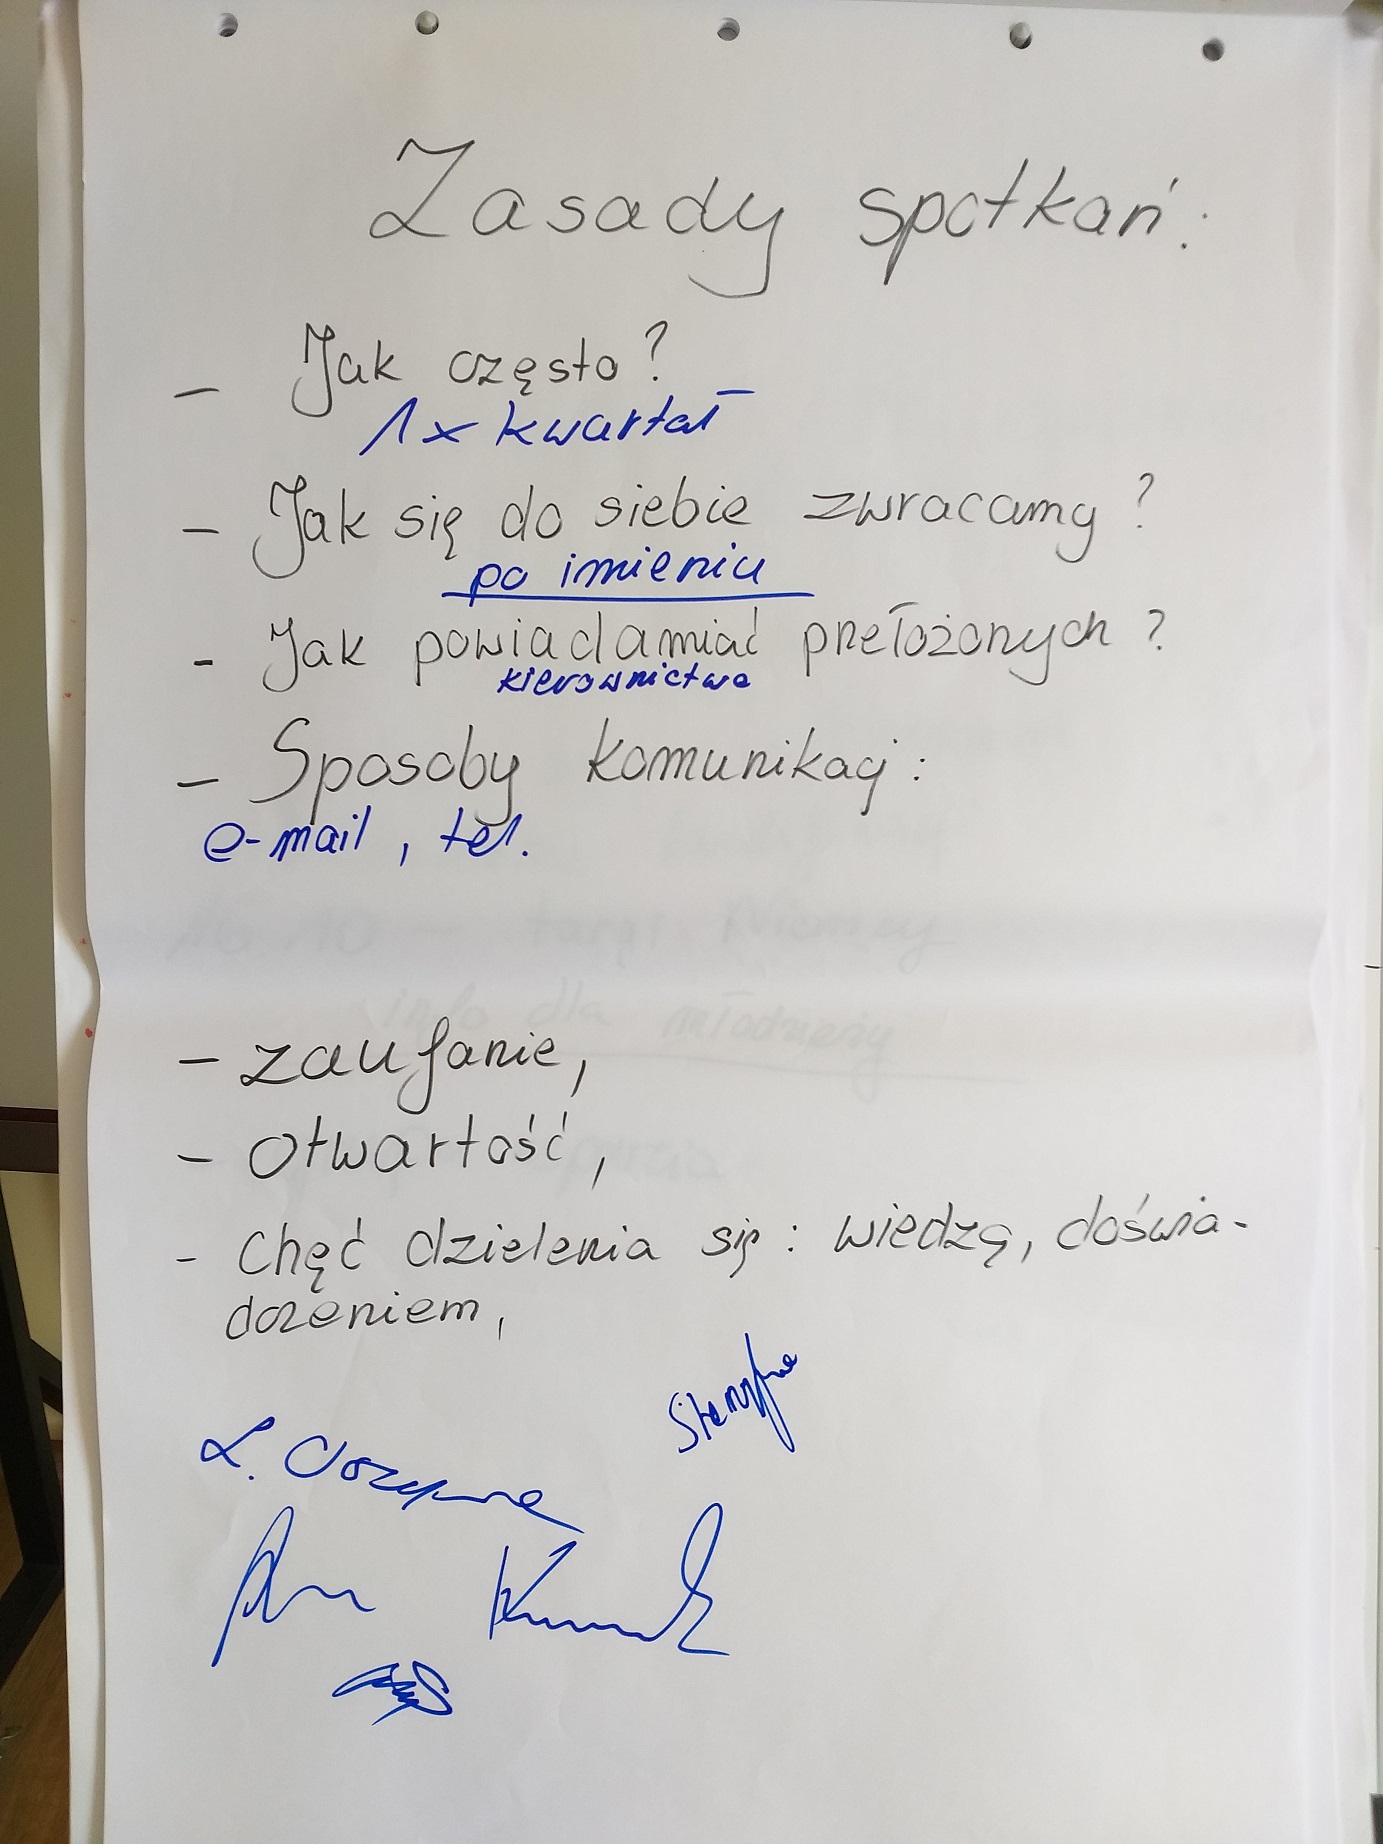 Zasady spotkań:
- Jak często?
1x kwartał
- Jak się do siebie zwracamy?
po imieniu
- Jak powiadamiać przełożonych?
kierownictwo
- Sposoby komunikacji:
e-mail, tel.
- zaufanie,
- otwartość,
- chęć dzielenia się: wiedzą, doświa-
dczeniem,